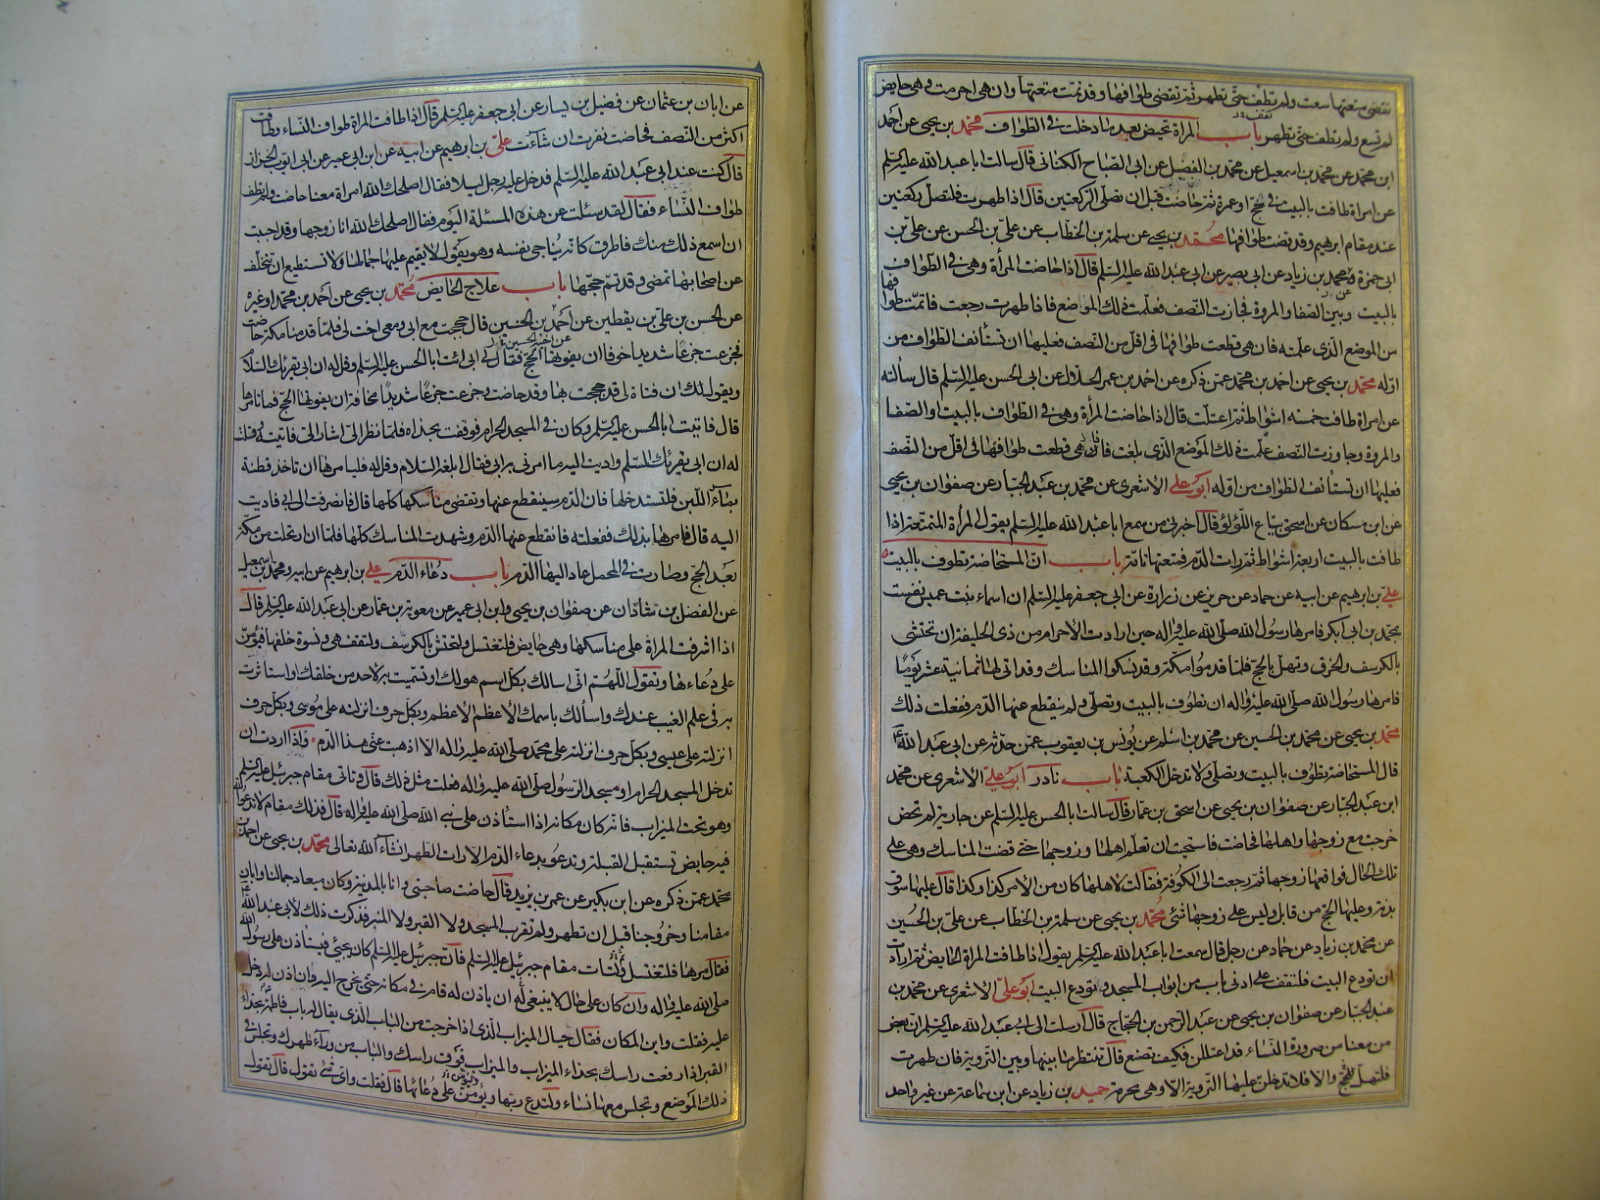 تقضى متعتها سعت ولم تطف حتى تطهر ثم تقضى طوافها وقد تمت متعتها وان هى احرمت وهى حايض
لم تسع ولم تطف حتى تطهر باب المراة تحيض بعد ما دخلت فى الطواف محمد بن يحيى عن احمد
ابن محمد عن محمد بن اسمعيل عن محمد بن الفضيل عن ابى الصباح الكنانى قال سالت ابا عبد الله عليه السلم
عن امراة طافت بالبيت فى حج او عمرة ثم حاضت قبل ان تصلى الركعتين قال اذا طهرت فلتصل ركعتين
عند مقام ابرهيم وقد قضت طوافها محمد بن يحيى عن سلمة بن الخطاب عن على بن الحسن عن على بن
ابى حمزة ومحمد بن زياد عن ابى بصير عن ابى عبد الله عليه السلم قال اذا حاضت المرأة وهى فى الطواف
بالبيت وبين الصفا والمروة فجازت النصف فعلمت ذلك الموضع فاذا طهرت رجعت فاتمت بقية طوافها
من الموضع الذى علمته فان هى قطعت طوافها فى اقل من النصف فعليها ان تستأنف الطواف من
اوله محمد بن يحيى عن احمد بن محمد عمن ذكره عن احمد بن عمر الحلال عن ابى الحسن عليه السلم قال سألته
عن امراة طافت خمسة اشواط ثم اعتلت قال اذا حاضت المرأة وهى فى الطواف بالبيت او الصفا
والمروة وجاوزت النصف علمت ذلك الموضع الذى بلغت فان هى قطعت طوافها فى اقل من النصف
فعليها ان تستأنف الطواف من اوله ابو على الاشعرى عن محمد بن عبد الجبار عن صفوان بن يحيى
عن ابن مسكان عن اسحق بياع اللؤلؤ قال اخبرنى من سمع ابا عبد الله عليه السلم يقول المرأة المتمتعة اذا
طافت بالبيت اربعة اشواط ثم رات الدم فمتعتها تامة باب ان المستحاضة تطوف بالبيت
على بن ابرهيم عن ابيه عن حماد عن حريز عن زرارة عن ابى جعفر عليه السلم ان اسماء بنت عميس نفست
بمحمد بن ابى بكر فامرها رسول الله صلى الله عليه واله حين ارادت الاحرام من ذى الحليفة ان تحتشى
بالكرسف والخرق وتهل بالحج فلما قدموا مكة وقد نسكوا المناسك وقد اتى لها ثمانية عشر يوما
فامرها رسول الله صلى الله عليه واله ان تطوف بالبيت وتصلى ولم ينقطع عنها الدم ففعلت ذلك
محمد بن يحيى عن محمد بن الحسين عن محمد بن اسلم عن يونس بن يعقوب عمن حدثه عن ابى عبد الله
قال المستحاضة تطوف بالبيت وتصلى ولا تدخل الكعبة باب نادر ابو على الاشعرى عن محمد
ابن عبد الجبار عن صفوان بن يحيى عن اسحق بن عمار قال سالت ابا الحسن عليه السلم عن جارية لم تحض
خرجت مع زوجها واهلها فحاضت فاستحيت ان تعلم اهلها وزوجها حتى قضت المناسك وهى على
تلك الحال فواقعها زوجها ثم رجعت الى الكوفة فقالت لاهلها كان من الامر كذا وكذا قال عليها سوق
بدنة وعليها الحج من قابل وليس على زوجها شئ محمد بن يحيى عن سلمة بن الخطاب عن على بن الحسين
عن محمد بن زياد عن حماد عن رجل قال سمعت ابا عبد الله عليه السلم يقول اذا طافت المراة الحايض ثم ارادت
ان تودع البيت فلتقف على ادنى باب من ابواب المسجد وتودع البيت ابو على الاشعرى عن محمد بن
عبد الجبار عن صفوان بن يحيى عن عبد الرحمن بن الحجاج قال ارسلت الى ابى عبد الله عليه السلم ان بعض
من معنا من صرورة النساء قد اعتللن فكيف تصنع قال تنتظر ما بينها وبين التروية فان طهرت
فلتهل بالحج والا فلا تدخلن عليها التروية الا وهى محرمة حميد بن زياد عن ابن سماعة عن غير واحد
عن ابان بن عثمان عن فضيل بن يسار عن ابى جعفر عليه السلم قال اذا طافت المراة طواف النساء وطافت
اكثر من النصف فحاضت نفرت ان شاءت على بن ابرهيم عن ابيه عن ابن ابى عمير عن ابى ايوب الخزاز
قال كنت عند ابى عبد الله عليه السلم فدخل عليه رجل ليلا فقال اصلحك الله امراة معنا حاضت ولم تطف
طواف النساء فقال لقد سئلت عن هذه المسئلة اليوم فقال اصلحك الله انا زوجها وقد احببت
ان اسمع ذلك منك فاطرق كانه يناجى نفسه وهو يقول لا يقيم عليها جمالها ولا تستطيع ان تتخلف
عن اصحابها تمضى وقد تم حجها باب علاج الحايض محمد بن يحيى عن احمد بن محمد او غيره
عن الحسن بن على بن يقطين عن اخيه الحسين قال حججت مع ابى ومعى اخت لى فلما قدمنا مكة حاضت
فجزعت جزعا شديدا خوفا ان يفوتها الحج فقال لى ابى ائت ابا الحسن عليه السلم وقل له ان ابى يقرئك السلام
ويقول لك ان فتاة لى قد حججت بها وقد حاضت وجزعت جزعا شديدا مخافة ان يفوتها الحج فما تامرها
قال فاتيت ابا الحسن عليه السلم وكان فى المسجد الحرام فوقفت بحذاه فلما نظر الى اشار الى فاتيته وقلت
له ان ابى يقرئك السلم واديت اليه ما امرنى به ابى فقال ابلغه السلام وقل له فليامرها ان تاخذ قطنة
بماء اللبن فلتستدخلها فان الدم سينقطع عنها وتقضى مناسكها كلها قال فانصرفت الى ابى فاديت
اليه قال فامرها بذلك ففعلته فانقطع عنها الدم وشهدت المناسك كلها فلما ان ارتحلت من مكة
بعد الحج وصارت فى المحمل عاد اليها الدم باب دعاء الدم على بن ابرهيم عن ابيه ومحمد بن اسمعيل
عن الفضل بن شاذان عن صفوان بن يحيى وابن ابى عمير عن معوية بن عمار عن ابى عبد الله عليه السلم قال
اذا اشرفت المراة على مناسكها وهى حايض فلتغتسل ولتحتش بالكرسف ولتقف هى ونسوة خلفها فيؤمن
على دعاءها وتقول اللهم انى اسالك بكل اسم هو لك او تسميت به لاحد من خلقك او استاثرت
به فى علم الغيب عندك واسألك باسمك الاعظم الاعظم وبكل حرف انزلته على موسى وبكل حرف
انزلته على عيسى وبكل حرف انزلته على محمد صلى الله عليه واله الا اذهبت عنى هذا الدم واذا اردت ان
تدخل المسجد الحرام او مسجد الرسول صلى الله عليه واله فعلت مثل ذلك قال وتاتى مقام جبرئيل عليه السلم
وهو تحت الميزاب فانه كان مكانه اذا استأذن على نبى الله صلى الله عليه واله قال فذلك مقام لا تدعو الله
فيه حايض تستقبل القبلة وتدعو بدعاء الدم الا رات الطهر انشاء الله تعالى محمد بن يحيى عن احمد بن
محمد عمن ذكره عن ابن بكير عن عمر بن يزيد قال حاضت صاحبتى وانا بالمدينة وكان ميعاد جمالنا وابان
مقامنا وخروجنا قبل ان تطهر ولم تقرب المسجد ولا القبر ولا المنبر فذكرت ذلك لابى عبد الله
فقال مرها فلتغتسل ولتات مقام جبرئيل عليه السلم فان جبرئيل عليه السلم كان يجئ فيستاذن على رسول الله
صلى الله عليه واله وان كان على حال لا ينبغى له ان ياذن له قام فى مكانه حتى يخرج اليه وان اذن له دخل
عليه فقلت واين المكان فقال حيال الميزاب الذى اذا خرجت من الباب الذى يقال له باب فاطمة بحذاء
القبر اذا رفعت راسك بحذاء الميزاب والميزاب فوق راسك والباب من وراء ظهرك وتجلس فى
ذلك الموضع وتجلس معها نساء ولتدع ربها ويؤمن على دعائها قال فقلت واى شئ تقول قال تقول